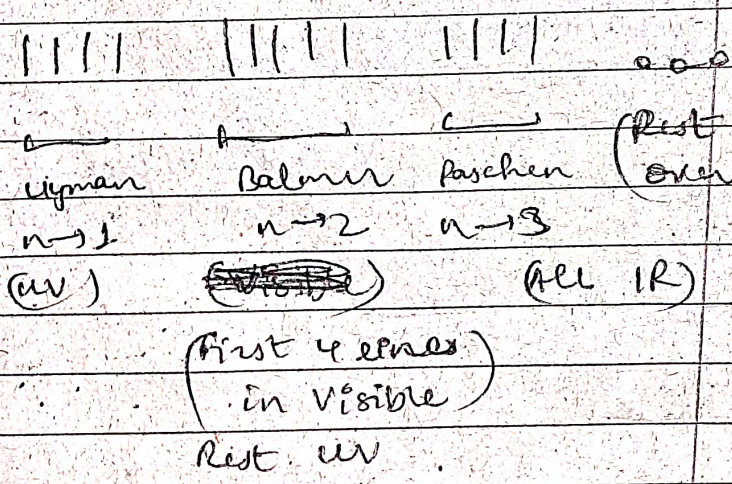 Lyman Balmer Paschen (Rest
n→1 n→2 n→3
(UV) (All IR)
(First 4 lines
in Visible)
Rest UV